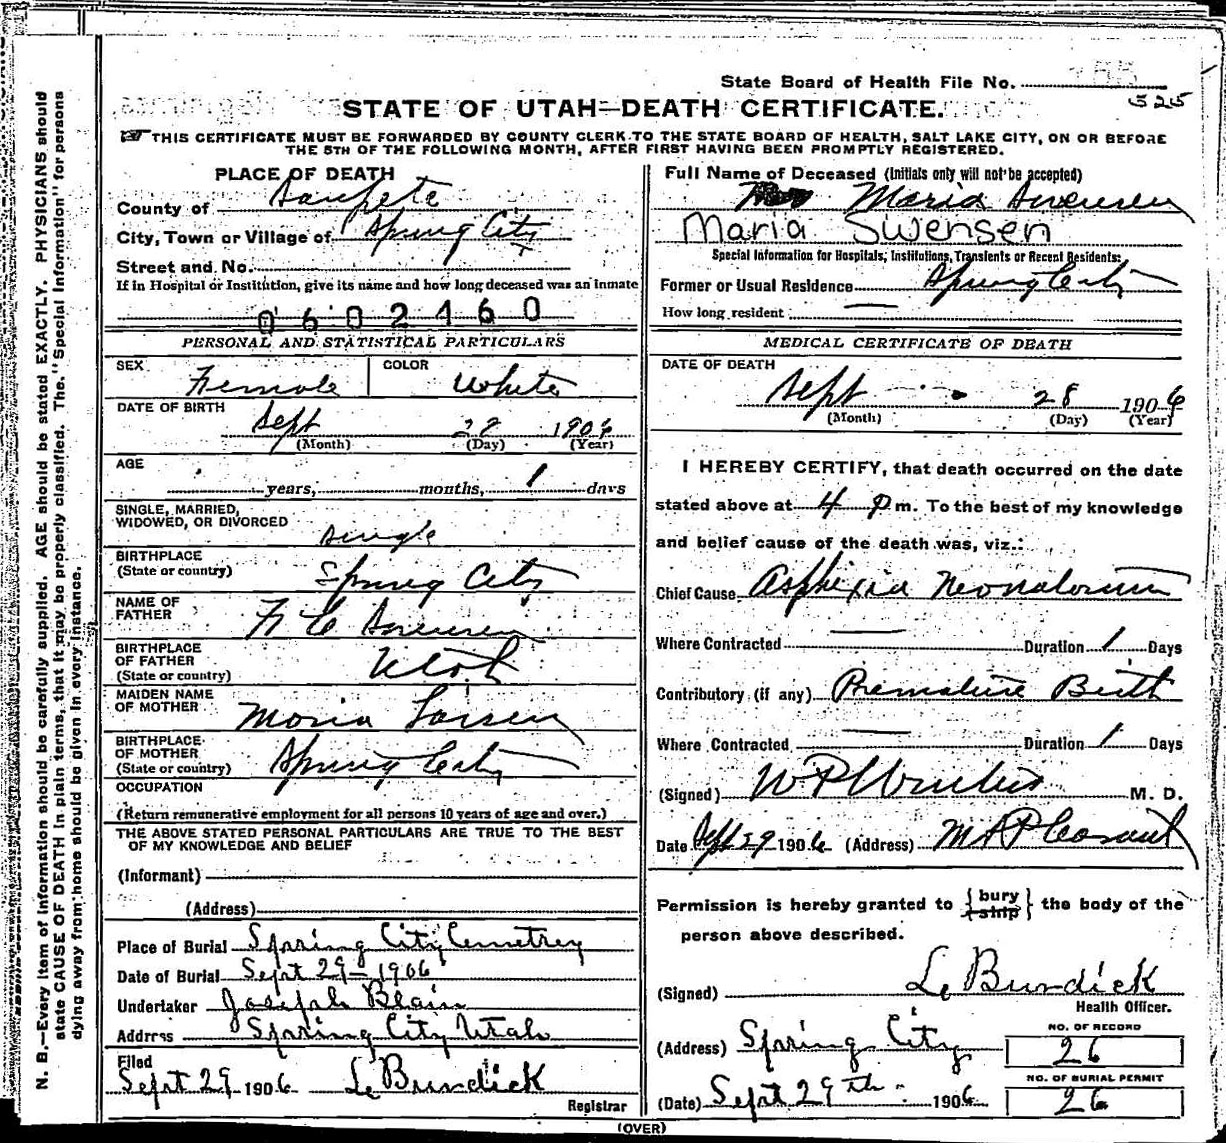 State Board of Health File No.
525
STATE OF UTAH—DEATH CERTIFICATE.
THIS CERTIFICATE MUST BE FORWARDED BY COUNTY CLERK TO THE STATE BOARD OF HEALTH, SALT LAKE CITY, ON OR BEFORE
THE 5TH OF THE FOLLOWING MONTH, AFTER FIRST HAVING BEEN PROMPTLY REGISTERED.
N. B.—Every item of information should be carefully supplied. AGE should be stated EXACTLY. PHYSICIANS should
state CAUSE OF DEATH in plain terms, that it may be properly classified. The "Special Information" for persons
dying away from home should be given in every instance.
PLACE OF DEATH
County of Sanpete
City, Town or Village of Spring City
Street and No.
If in Hospital or Institution, give its name and how long deceased was an inmate
0602460
PERSONAL AND STATISTICAL PARTICULARS
SEX Female COLOR White
DATE OF BIRTH
Sept 28 1906
(Month) (Day) (Year)
AGE
years, months, 1 days
SINGLE, MARRIED,
WIDOWED, OR DIVORCED
Single
BIRTHPLACE
(State or country) Spring City
NAME OF
FATHER
Swensen
BIRTHPLACE
OF FATHER
(State or country) Utah
MAIDEN NAME
OF MOTHER
Maria Larsen
BIRTHPLACE
OF MOTHER
(State or country) Spring City
OCCUPATION
(Return remunerative employment for all persons 10 years of age and over.)
THE ABOVE STATED PERSONAL PARTICULARS ARE TRUE TO THE BEST
OF MY KNOWLEDGE AND BELIEF
(Informant)
(Address)
Place of Burial Spring City Cemetrey
Date of Burial Sept 29 - 1906
Undertaker Joseph Blain
Address Spring City Utah
Filed
Sept 29 1906 L. Burdick
Registrar
Full Name of Deceased (Initials only will not be accepted)
Maria Swensen
Maria Swensen
Special Information for Hospitals, Institutions, Transients or Recent Residents:
Former or Usual Residence Spring City
How long resident —
MEDICAL CERTIFICATE OF DEATH
DATE OF DEATH
Sept 28 1906
(Month) (Day) (Year)
I HEREBY CERTIFY, that death occurred on the date
stated above at 4 P m. To the best of my knowledge
and belief cause of the death was, viz.:
Chief Cause Asphixia Neonatorum
Where Contracted — Duration 1 Days
Contributory (if any) Premature Birth
Where Contracted — Duration 1 Days
(Signed) M. D.
Date Sept 29 1906 (Address) Mt Pleasant
Permission is hereby granted to { bury ship } the body of the
person above described.
(Signed) L. Burdick
Health Officer.
(Address) Spring City
NO. OF RECORD
26
(Date) Sept 29th 1906
NO. OF BURIAL PERMIT
26
(OVER)